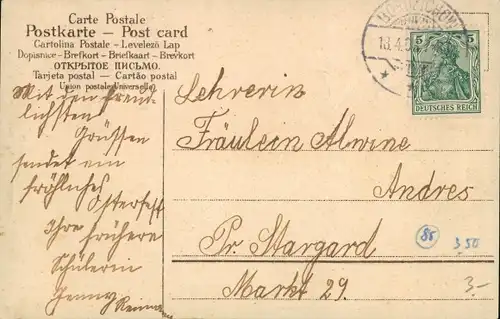 Carte Postale
Postkarte — Post card
Cartolina Postale - Levelező Lap
Dopisnice - Brefkort - Briefkaart - Brevkort
ОТКРЫТОЕ ПИСЬМО.
Tarjeta postal — Cartão postal
Union postale Universelle
5 5
DEUTSCHES REICH
Mit den freund-
lichsten
Grüssen
sendet ein
fröhliches
Osterfest
Ihre frühere
Schülerin
Jenny
Lehrerin
Fräulein Alwine
Andres
Pr. Stargard
Markt 29.
85
3,50
3.-